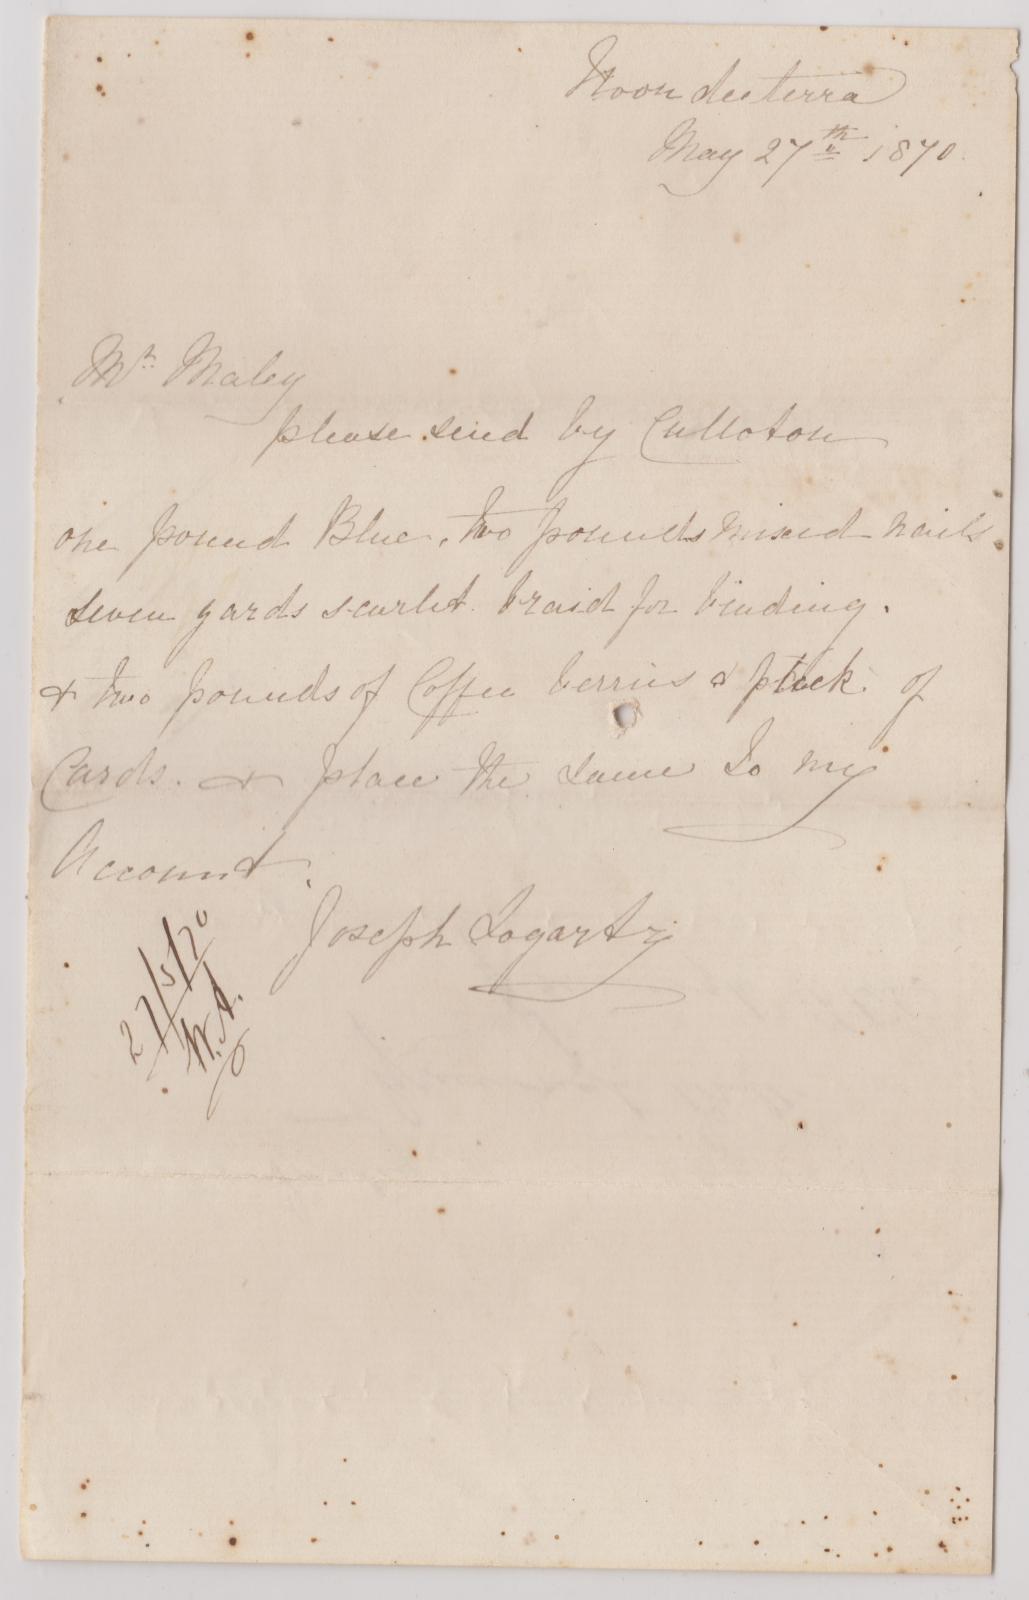 Noondeeterra
May 27th 1870.
Mr Maley
please send by Culloton
one pound Blue, two pounds mixed nails
seven yards scarlet braid for binding.
& two pounds of Coffee berries & pack of
Cards. & place the same to my
Account.
Joseph Fogarty
27/5/70